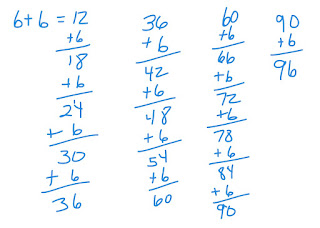 6+6 = 12
+6
18
+6
24
+6
30
+6
36
36
+6
42
+6
48
+6
54
+6
60
60
+6
66
+6
72
+6
78
+6
84
+6
90
90
+6
96